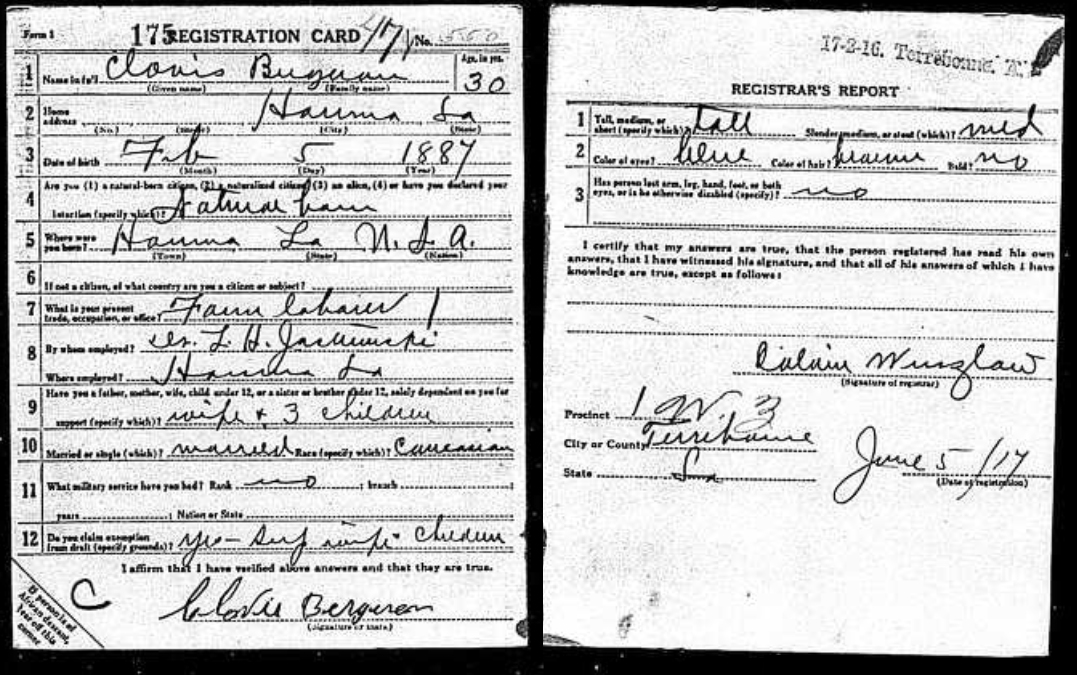 Form 1 175 REGISTRATION CARD 47 No. 550
1 Name in full Clovis Bugeron Age, in yrs. 30
(Given name) (Family name)
2 Home address Houma La
(No.) (Street) (City) (State)
3 Date of birth Feb 5 1887
(Month) (Day) (Year)
Are you (1) a natural-born citizen, (2) a naturalized citizen, (3) an alien, (4) or have you declared your
4 intention (specify which)? Natural born
5 Where were you born? Houma La U.S.A.
(Town) (State) (Nation)
6 If not a citizen, of what country are you a citizen or subject?
7 What is your present trade, occupation, or office? Farm laborer
8 By whom employed? L. H. Jastremski
Where employed? Houma La
9 Have you a father, mother, wife, child under 12, or a sister or brother under 12, solely dependent on you for
support (specify which)? wife + 3 children
10 Married or single (which)? married Race (specify which)? Caucasian
11 What military service have you had? Rank no ; branch ;
years ; Nation or State
12 Do you claim exemption from draft (specify grounds)? yes - wife + children
I affirm that I have verified above answers and that they are true.
C Clovis Bergeron
(Signature or mark)
If person is of
African descent,
tear off this
corner
17-2-16. Terrebonne.
REGISTRAR'S REPORT
1 Tall, medium, or short (specify which)? Tall Slender, medium, or stout (which)? med
2 Color of eyes? blue Color of hair? brown Bald? no
3 Has person lost arm, leg, hand, foot, or both
eyes, or is he otherwise disabled (specify)? no
I certify that my answers are true, that the person registered has read his own
answers, that I have witnessed his signature, and that all of his answers of which I have
knowledge are true, except as follows:
Calvin Wurzlow
(Signature of registrar)
Precinct 1 W. 3
City or County Terrebonne
State La
June 5 /17
(Date of registration)